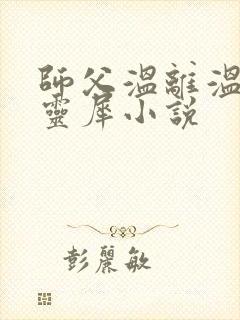 師父溫離溫
靈犀小說
彭麗敏